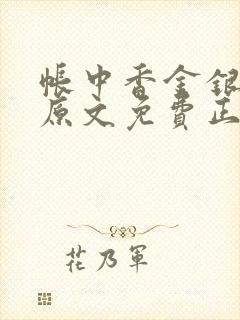 帳中香金銀
原文免費正
花乃軍